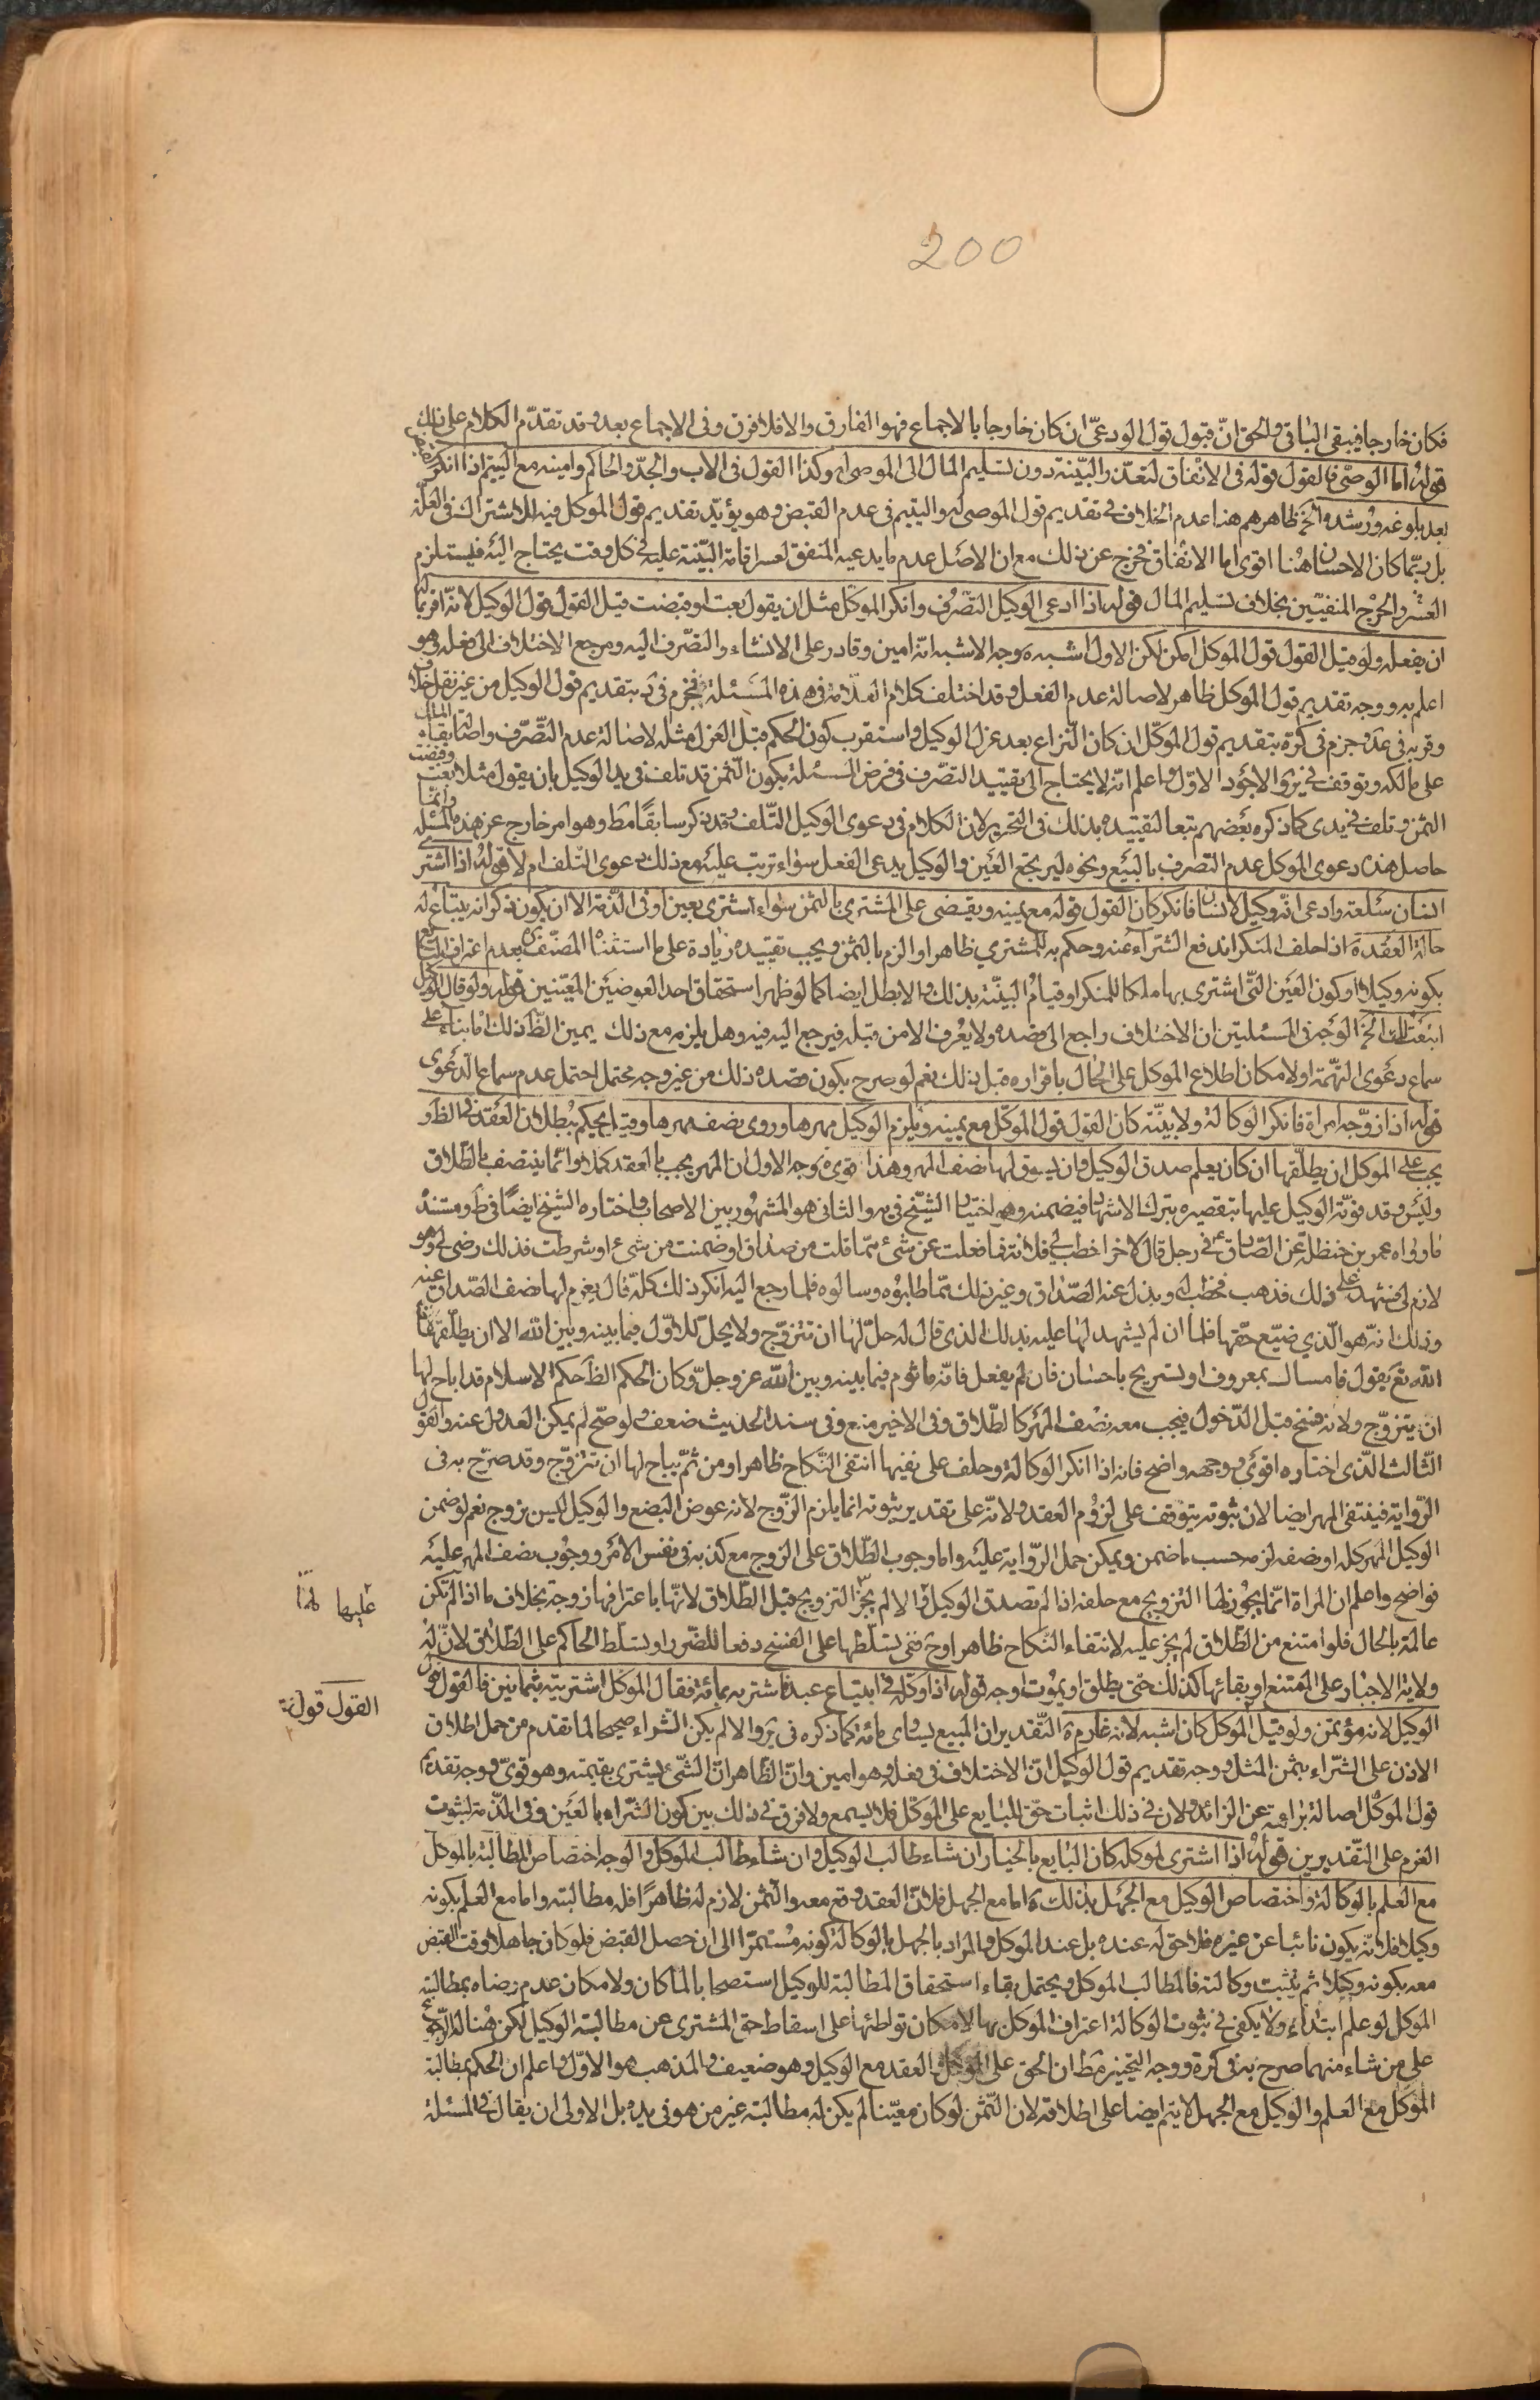 200
فكان خارجا فيبقى الباقى والحق انّ قبول قول الودعىّ ان كان خارجا بالاجماع فهو الفارق والا فلا فرق وفى الاجماع بعد وقد تقدّم الكلام على ذلك
قوله اما الوصىّ فالقول قوله فى الانفاق لتعذّر البيّنة دون تسليم المال الى الموصى له وكذا القول فى الاب والجدّ والحاكم وامينه مع اليتيم اذا انكر
بعد بلوغه ورشده الخ ظاهرهم هنا عدم الخلاف فى تقديم قول الموصى له واليتيم فى عدم القبض وهو يؤيّد تقديم قول الموكل فيه للاشتراك فى العلّة
بل ربّما كان الاحسان هنا اقوى اما الانفاق فخرج عن ذلك مع ان الاصل عدم ما يدعيه المنفق لعسر اقامة البيّنة عليه فى كل وقت يحتاج اليه فيستلزم
العسر والحرج المنفيّين بخلاف تسليم المال قوله اذا ادعى الوكيل التصرّف وانكر الموكّل مثل ان يقول بعت او قبضت قيل القول قول الوكيل لانه اقر بما له
ان يفعله ولو قيل القول قول الموكل امكن لكن الاول اشبه وجه الاشبه انّه امين وقادر على الانشاء والتصرّف اليه ومرجع الاختلاف الى فعله وهو
اعلم به ووجه تقديم قول الموكل ظاهر لاصالة عدم الفعل وقد اختلف كلام العلامة فى هذه المسئلة فجزم فى د بتقديم قول الوكيل من غير نقل خلاف
وقربه فى عد وجزم فى كرة بتقديم قول الموكّل ان كان النزاع بعد عزل الوكيل واستقرب كون الحكم قبل العزل مثله لاصالة عدم التّصرّف واصالة بقاء المال
على مالكه وتوقف فى ير والاجود الاوّل واعلم انّه لا يحتاج الى تقييد التصرّف فى فرض المسئلة بكون الثمن قد تلف فى يد الوكيل بان يقول مثلا بعت وقبضت
الثمن وتلف فى يدى كما ذكره بعضهم تبعا لتقييده بذلك فى التحرير لان الكلام فى دعوى الوكيل التّلف وقد ذكر سابقًا مط وهو امر خارج عن هذه المسئلة وانما
حاصل هذه دعوى الموكل عدم التصرف بالبيع ونحوه ليرتجع العين والوكيل يدعى الفعل سواء ترتب عليه مع ذلك دعوى التلف ام لا قوله اذا اشترى
انسان سلعة وادعى انّه وكيل لانسان فانكر كان القول قوله مع يمينه ويقضى على المشترى بالثمن سواء اشترى بعين او فى الذمّة الا ان يكون ذكر انه يبتاع له
حالة العقد اذا حلف المنكر اندفع الشراء عنه وحكم به للمشتري ظاهرا والزم بالثمن ويجب تقييده زيادة على ما استثناه المصنّف بعدم اعتراف البايع
بكونه وكيلا او كون العين التّى اشترى بها ملكا للمنكر او قيام البيّنة بذلك والا بطل ايضا كما لو ظهر استحقاق احد العوضين المعيّنين قوله ولو قال الوكيل
ابتعت لك الخ الوجه فى المسئلتين ان الاختلاف راجع الى قصده ولا يعرف الا من قبله فيرجع اليه فيه وهل يلزمه مع ذلك يمين الظ ذلك اما بناء على
سماع دعوى التهمة او لامكان اطلاع الموكل على الحال باقراره قبل ذلك نعم لو صرح بكون قصده ذلك من غير وجه محتمل احتمل عدم سماع الدعوى
قوله اذا زوّجه امراة فانكر الوكالة ولا بيّنة كان القول قول الموكّل مع يمينه ويلزم الوكيل مهرها وروى نصف مهرها وقيل يحكم ببطلان العقد فى الظ و
يجب على الموكل ان يطلّقها ان كان يعلم صدق الوكيل وان يسوق لها نصف المهر وهذا قوى وجه الاول ان المهر يجب بالعقد كملا وانما ينتصف بالطلاق
وليس وقد فوّته الوكيل عليها بتقصيره بترك الاشهاد فيضمنه وهو اختيار الشيخ فى يه والثانى هو المشهور بين الاصحاب واختاره الشيخ ايضًا فى ط ومستنده
ما رواه عمر بن حنظلة عن الصّادق ع فى رجل قال لاخر اخطب لى فلانة فما فعلت عن شئ ممّا قلت من صداق او ضمنت من شئ او شرطت فذلك رضى لى وهو
لازم لى ولم يشهد على ذلك فذهب فخطب له وبذل عنه الصّداق وغير ذلك ممّا طالبوه وسالوه فلما رجع اليه انكر ذلك كلّه قال يغرم لها نصف الصّداق عنه
وذلك انّه هو الّذي ضيّع حقّها فلما ان لم يشهد لها عليه بذلك الذى قال له حلّ لها ان تتزوّج ولا يحلّ للاوّل فيما بينه وبين الله الا ان يطلّقها لان
الله تع يقول فامساك بمعروف او تسريح باحسان فان لم يفعل فانّه ماثوم فيما بينه وبين الله عز وجلّ وكان الحكم الظ حكم الاسلام قد اباح لها
ان يتزوّج ولانه فسخ قبل الدّخول فيجب معه نصف المهر كالطلاق وفى الاخير منع وفى سند الحديث ضعف ولو صحّ لم يمكن العدول عنه والقول
الثّالث الّذى اختاره اقوى ووجهه واضح فانه اذا انكر الوكالة وحلف على نفيها انتفى النّكاح ظاهرا ومن ثمّ يباح لها ان تتزوّج وقد صرّح به فى
الرّواية فينتفى المهر ايضا لان ثبوته يتوقف على لزوم العقد ولانّه على تقدير ثبوته انما يلزم الزّوج لانه عوض البضع والوكيل ليس بزوج نعم لو ضمن
الوكيل المهر كله او نصفه لزمه حسب ما ضمن ويمكن حمل الرّواية عليه واما وجوب الطّلاق على الزوج مع كذبه فى نفس الامر ووجوب نصف المهر عليه
فواضح واعلم ان المراة انّما يجوز لها التزويج مع حلفه اذا لم تصدق الوكيل والا لم يجز التزويج قبل الطّلاق لانّها باعترافها زوجة بخلاف ما اذا لم تكن
عليها
عالمة بالحال فلو امتنع من الطّلاق لم يجز عليه لانتفاء النّكاح ظاهرا وح ففى تسلّطها على الفسخ دفعا للضّرر او تسلّط الحاكم على الطّلاق لانّ له
ولاية الاجبار على الممتنع او بقائها كذلك حتى يطلق او يموت اوجه قوله اذا وكّله فى ابتياع عبد فاشتريه بمائة فقال الموكل اشتريته بثمانين فالقول قول
القول قوله
الوكيل لانه مؤتمن ولو قيل الموكل كان اشبه لانه غارم التّقدير ان المبيع يساوى مائة كما ذكره فى ير والا لم يكن الشراء صحيحا لما تقدم من حمل اطلاق
الاذن على الشّراء بثمن المثل ووجه تقديم قول الوكيل انّ الاختلاف فى فعله وهو امين وانّ الظّاهر انّ الشّئ يشترى بقيمته وهو قوىّ ووجه تقديم
قول الموكّل اصالة براءته عن الزائد ولان فى ذلك اثبات حقّ للبايع على الموكّل فلا يسمع ولا فرق فى ذلك بين كون الشّراء بالعين وفى الذّمة لثبوت
الغرم على التقديرين قوله اذا اشترى لموكله كان البايع بالخيار ان شاء طالب الوكيل وان شاء طالب الموكل والوجه اختصاص المطالبة بالموكل
مع العلم بالوكالة واختصاص الوكيل مع الجهل بذلك اما مع الجهل فلانّ العقد وقع معه والثمن لازم له ظاهرًا فله مطالبته واما مع العلم بكونه
وكيلا فلانّه يكون نائبا عن غيره فلا حق له عنده بل عند الموكل والمراد بالجهل بالوكالة كونه مستمرّا الى ان حصل القبض فلو كان جاهلا وقت القبض
معه بكونه وكيلا ثم يثبت وكالته فالمطالب الموكل ويحتمل بقاء استحقاق المطالبة للوكيل استصحابا لما كان ولامكان عدم رضاه بمطالبة
الموكل لو علم ابتداء ولا يكفى فى ثبوت الوكالة اعتراف الموكل بها لامكان تواطئها على اسقاط حق المشترى عن مطالبة الوكيل لكن هنا له الرجوع
على من شاء منهما صرح به فى كرة ووجه التخيير مط ان الحق على الموكل والعقد مع الوكيل وهو ضعيف والمذهب هو الاوّل واعلم ان الحكم بمطالبة
الموكل مع العلم والوكيل مع الجهل لا يتم ايضا على اطلاقه لان الثّمن لو كان معيّنا لم يكن له مطالبة غير من هو فى يده بل الاولى ان يقال فى المسئلة